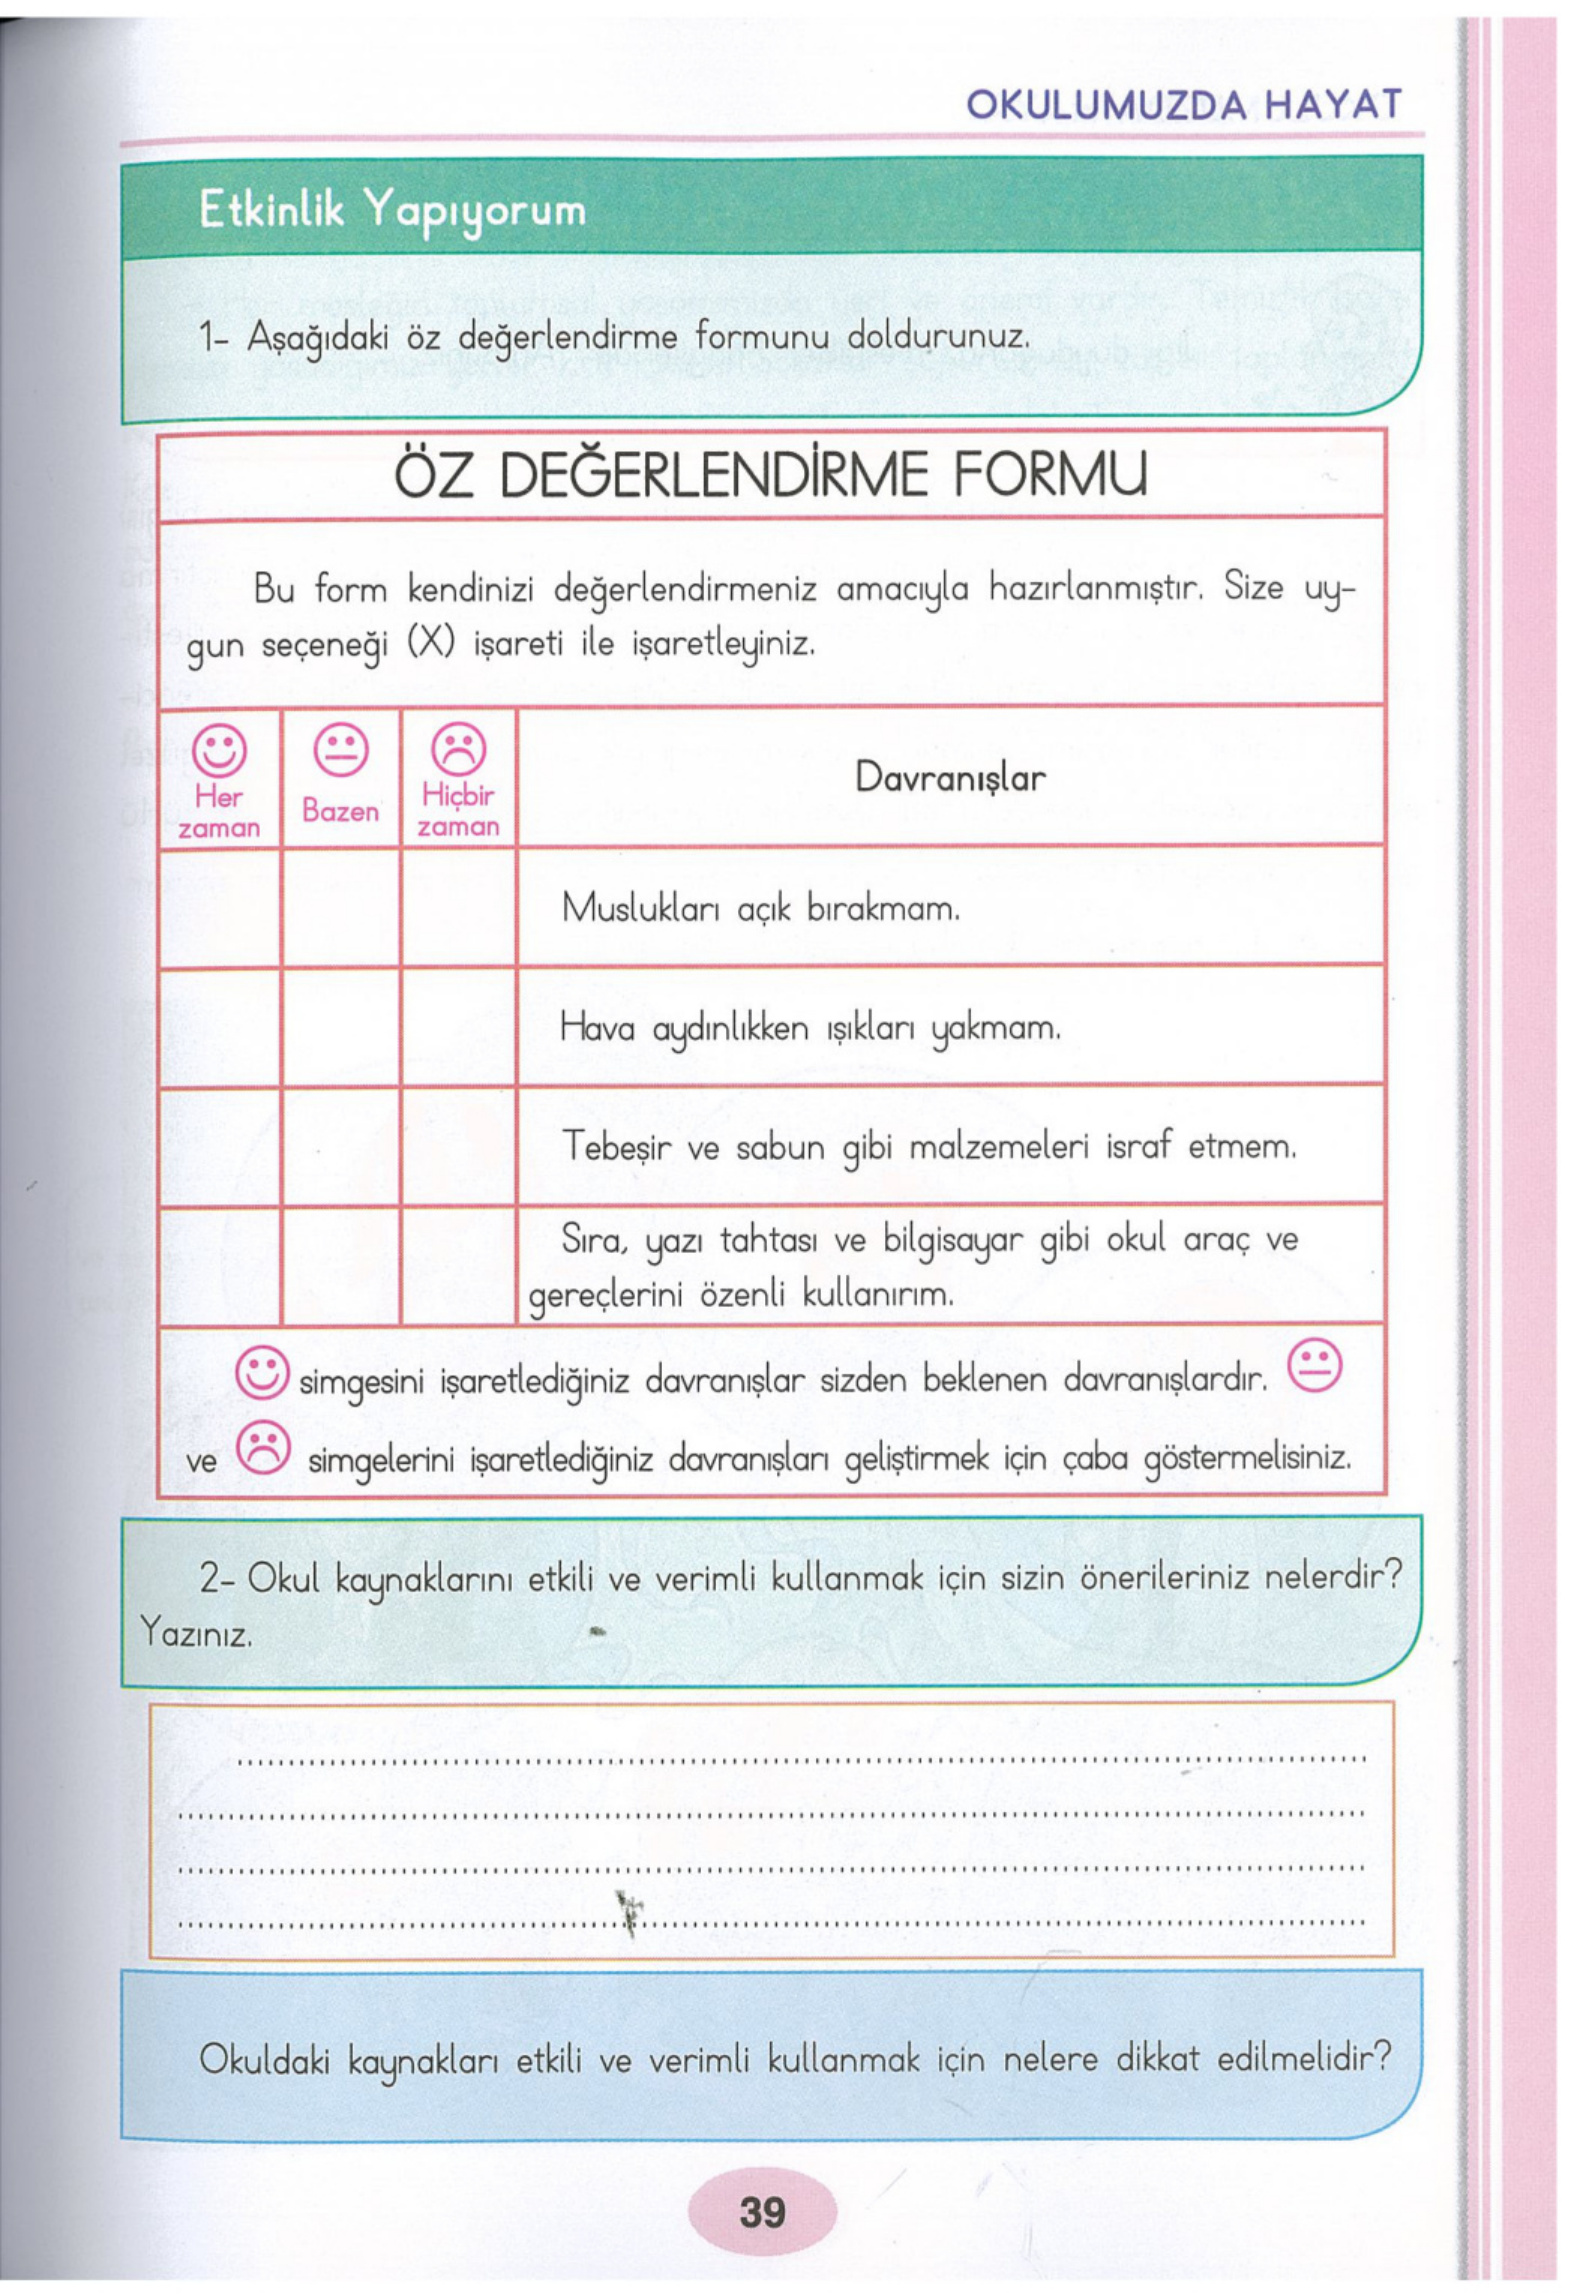 OKULUMUZDA HAYAT
Etkinlik Yapıyorum
1- Aşağıdaki öz değerlendirme formunu doldurunuz.
ÖZ DEĞERLENDİRME FORMU
Bu form kendinizi değerlendirmeniz amacıyla hazırlanmıştır. Size uy-
gun seçeneği (X) işareti ile işaretleyiniz.
Her zaman
Bazen
Hiçbir zaman
Davranışlar
Muslukları açık bırakmam.
Hava aydınlıkken ışıkları yakmam.
Tebeşir ve sabun gibi malzemeleri israf etmem.
Sıra, yazı tahtası ve bilgisayar gibi okul araç ve
gereçlerini özenli kullanırım.
simgesini işaretlediğiniz davranışlar sizden beklenen davranışlardır.
ve simgelerini işaretlediğiniz davranışları geliştirmek için çaba göstermelisiniz.
2- Okul kaynaklarını etkili ve verimli kullanmak için sizin önerileriniz nelerdir?
Yazınız.
Okuldaki kaynakları etkili ve verimli kullanmak için nelere dikkat edilmelidir?
39